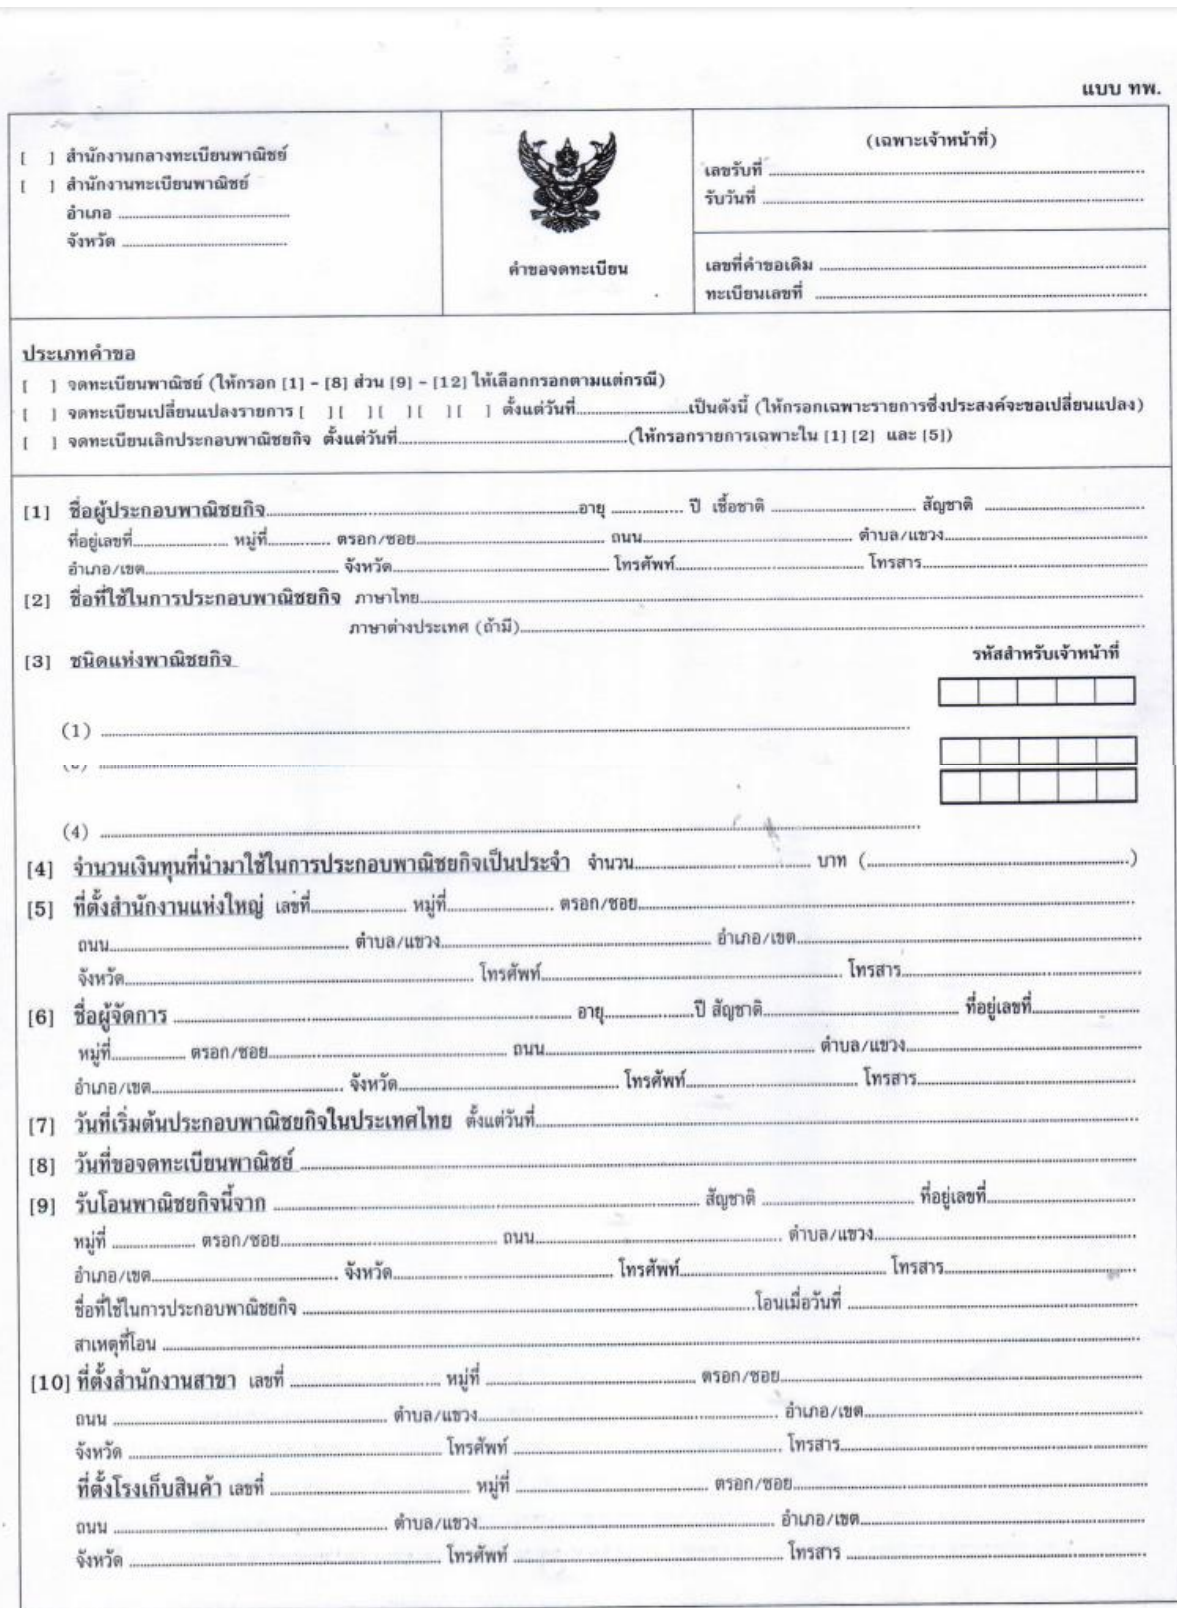 แบบ ทพ.
[ ] สำนักงานกลางทะเบียนพาณิชย์
[ ] สำนักงานทะเบียนพาณิชย์
อำเภอ ........................
จังหวัด ........................
คำขอจดทะเบียน
(เฉพาะเจ้าหน้าที่)
เลขรับที่ ........................
รับวันที่ ........................
เลขที่คำขอเดิม ........................
ทะเบียนเลขที่ ........................
ประเภทคำขอ
[ ] จดทะเบียนพาณิชย์ (ให้กรอก [1] - [8] ส่วน [9] - [12] ให้เลือกกรอกตามแต่กรณี)
[ ] จดทะเบียนเปลี่ยนแปลงรายการ [ ] [ ] [ ] [ ] ตั้งแต่วันที่................เป็นดังนี้ (ให้กรอกเฉพาะรายการซึ่งประสงค์จะขอเปลี่ยนแปลง)
[ ] จดทะเบียนเลิกประกอบพาณิชยกิจ ตั้งแต่วันที่................(ให้กรอกรายการเฉพาะใน [1] [2] และ [5])
[1] ชื่อผู้ประกอบพาณิชยกิจ................อายุ ........ ปี เชื้อชาติ ................ สัญชาติ ................
ที่อยู่เลขที่........ หมู่ที่........ ตรอก/ซอย................ ถนน................ ตำบล/แขวง................
อำเภอ/เขต................ จังหวัด................ โทรศัพท์................ โทรสาร................
[2] ชื่อที่ใช้ในการประกอบพาณิชยกิจ ภาษาไทย................
ภาษาต่างประเทศ (ถ้ามี)................
[3] ชนิดแห่งพาณิชยกิจ รหัสสำหรับเจ้าหน้าที่
(1) ................
(4) ................
[4] จำนวนเงินทุนที่นำมาใช้ในการประกอบพาณิชยกิจเป็นประจำ จำนวน................ บาท (................)
[5] ที่ตั้งสำนักงานแห่งใหญ่ เลขที่................ หมู่ที่................ ตรอก/ซอย................
ถนน................ ตำบล/แขวง................ อำเภอ/เขต................
จังหวัด................ โทรศัพท์................ โทรสาร................
[6] ชื่อผู้จัดการ ................ อายุ........ปี สัญชาติ................ ที่อยู่เลขที่................
หมู่ที่........ ตรอก/ซอย................ ถนน................ ตำบล/แขวง................
อำเภอ/เขต................ จังหวัด................ โทรศัพท์................ โทรสาร................
[7] วันที่เริ่มต้นประกอบพาณิชยกิจในประเทศไทย ตั้งแต่วันที่................
[8] วันที่ขอจดทะเบียนพาณิชย์ ................
[9] รับโอนพาณิชยกิจนี้จาก ................ สัญชาติ ................ ที่อยู่เลขที่................
หมู่ที่ ........ ตรอก/ซอย................ ถนน................ ตำบล/แขวง................
อำเภอ/เขต................ จังหวัด................ โทรศัพท์................ โทรสาร................
ชื่อที่ใช้ในการประกอบพาณิชยกิจ ................โอนเมื่อวันที่ ................
สาเหตุที่โอน ................
[10] ที่ตั้งสำนักงานสาขา เลขที่ ................ หมู่ที่ ................ ตรอก/ซอย................
ถนน ................ ตำบล/แขวง................ อำเภอ/เขต................
จังหวัด ................ โทรศัพท์ ................ โทรสาร................
ที่ตั้งโรงเก็บสินค้า เลขที่ ................ หมู่ที่ ................ ตรอก/ซอย................
ถนน ................ ตำบล/แขวง................ อำเภอ/เขต................
จังหวัด ................ โทรศัพท์ ................ โทรสาร ................